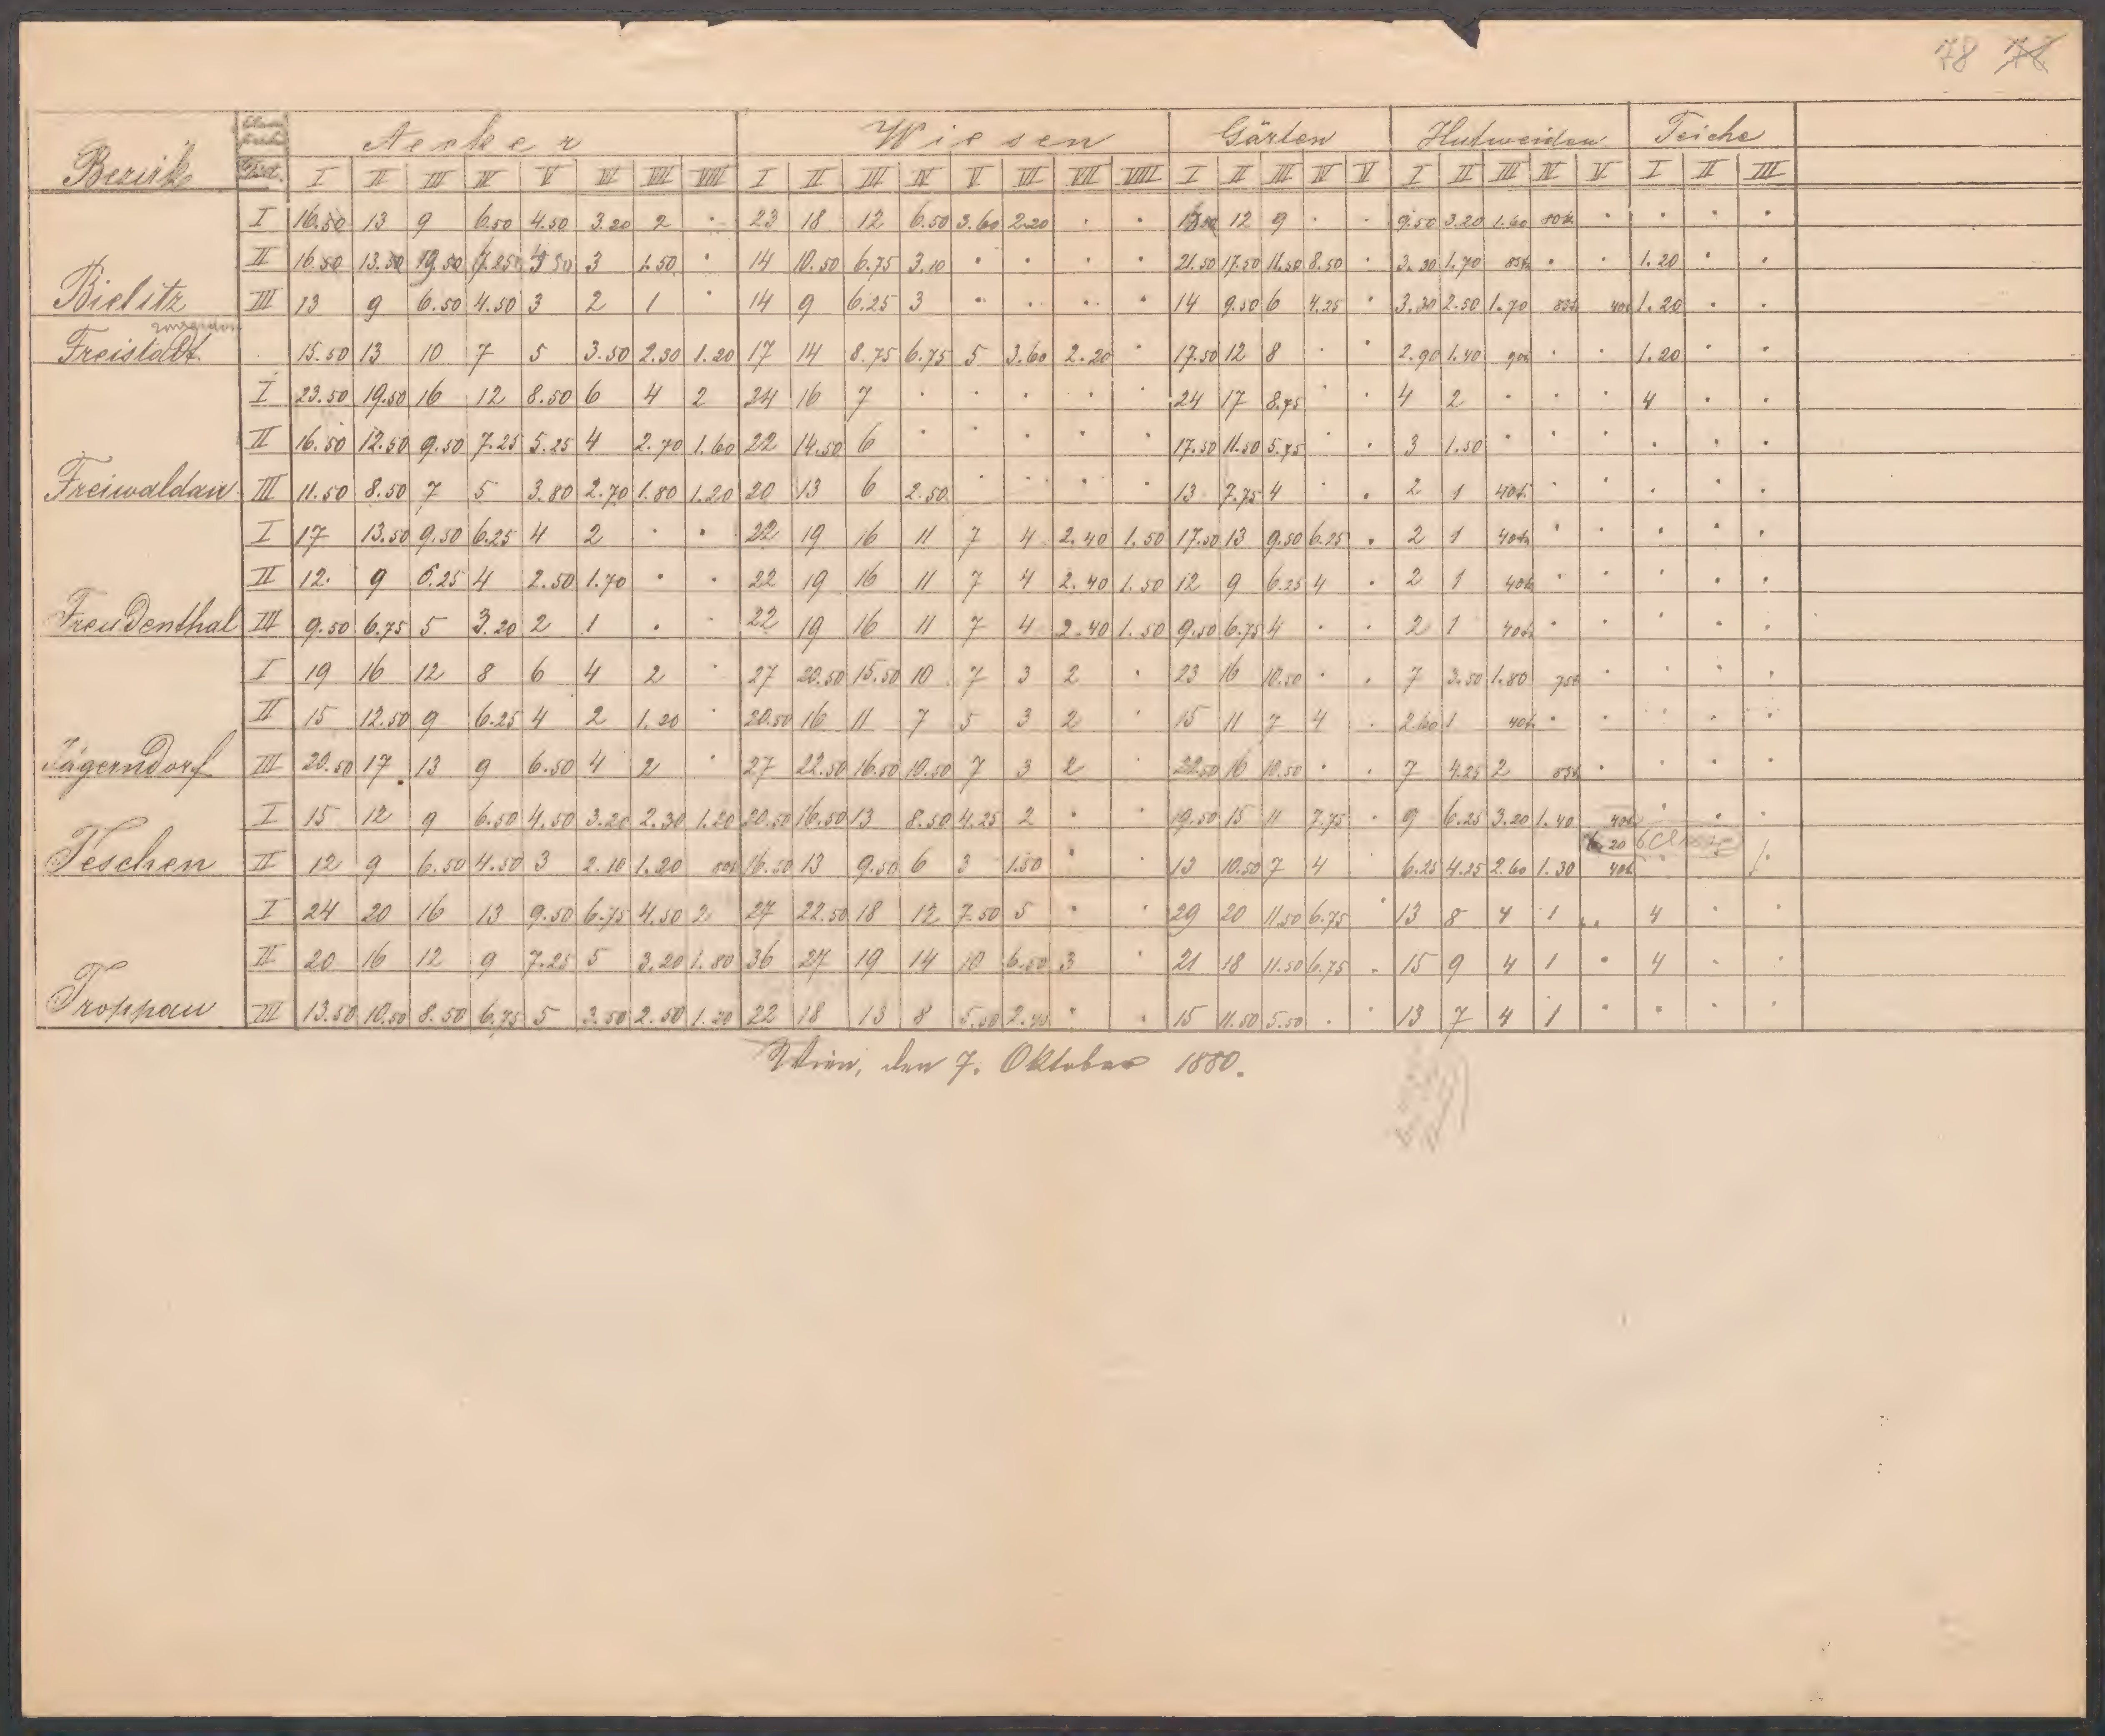 78 78
Bezirk Aecker Wiesen Gärten Hutweiden Teiche
Dist. I II III IV V VI VII VIII I II III IV V VI VII VIII I II III IV V I II III IV V I II III
I 16.50 13 9 6.50 4.50 3.20 2 · 23 18 12 6.50 3.60 2.20 · · 12 9 · · 9.50 3.20 1.60 80k. · · · ·
II 16.50 13.50 3 1.50 · 14 10.50 6.75 3.10 · · · · 21.50 17.50 11.50 8.50 · 3.30 1.70 85k · · 1.20 · ·
Bielitz III 13 9 6.50 4.50 3 2 1 · 14 9 6.25 3 · · · · 14 9.50 6 4.25 · 3.30 2.50 1.70 85k 40k 1.20 · ·
Freistadt · 15.50 13 10 7 5 3.50 2.30 1.20 17 14 8.75 6.75 5 3.60 2.20 · 17.50 12 8 · · 2.90 1.40 90k · · 1.20 · ·
I 23.50 19.50 16 12 8.50 6 4 2 24 16 7 · · · · · 24 17 8.75 · · 4 2 · · · 4 · ·
II 16.50 12.50 9.50 7.25 5.25 4 2.70 1.60 22 14.50 6 · · · · · 17.50 11.50 5.75 · · 3 1.50 · · · · · ·
Freiwaldau III 11.50 8.50 7 5 3.80 2.70 1.80 1.20 20 13 6 2.50 · · · · 13 7.75 4 · · 2 1 40k · · · · ·
I 17 13.50 9.50 6.25 4 2 · · 22 19 16 11 7 4 2.40 1.50 17.50 13 9.50 6.25 · 2 1 40k · · · · ·
II 12. 9 6.25 4 2.50 1.70 · · 22 19 16 11 7 4 2.40 1.50 12 9 6.25 4 · 2 1 40k · · · · ·
Freudenthal III 9.50 6.75 5 3.20 2 1 · · 22 19 16 11 7 4 2.40 1.50 9.50 6.75 4 · · 2 1 40k · · · · ·
I 19 16 12 8 6 4 2 · 27 20.50 15.50 10 7 3 2 · 23 16 10.50 · · 7 3.50 1.80 75k · · · ·
II 15 12.50 9 6.25 4 2 1.20 · 20.50 16 11 7 5 3 2 · 15 11 7 4 · 2.60 1 40k · · · · ·
Jägerndorf III 20.50 17 13 9 6.50 4 2 · 27 22.50 16.50 10.50 7 3 2 · 22.50 16 10.50 · · 7 4.25 2 85k · · · ·
I 15 12 9 6.50 4.50 3.20 2.30 1.20 20.50 16.50 13 8.50 4.25 2 · · 19.50 15 11 7.75 · 9 6.25 3.20 1.40 40k · · ·
Teschen II 12 9 6.50 4.50 3 2.10 1.20 80k 16.50 13 9.50 6 3 1.50 · · 13 10.50 7 4 6.25 4.25 2.60 1.30 40k
I 24 20 16 13 9.50 6.75 4.50 2 27 22.50 18 12 7.50 5 · · 29 20 11.50 6.75 · 13 8 4 1 · 4 · ·
II 20 16 12 9 7.25 5 3.20 1.80 36 27 19 14 10 6.50 3 · 21 18 11.50 6.75 · 15 9 4 1 · 4 · ·
Troppau III 13.50 10.50 8.50 6.75 5 3.50 2.50 1.20 22 18 13 8 5.50 2.40 · · 15 11.50 5.50 · · 13 7 4 1 · · · ·
Wien, den 7. Oktober 1880.